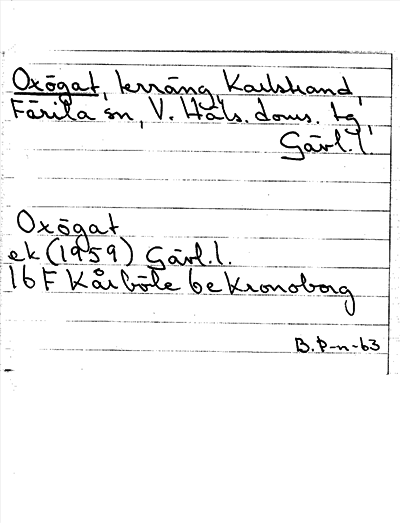 Oxögat, terräng, Karlstrand,
Färila sn, V. Häls. doms. tg,
Gävl.l.
Oxögat
ek (1959) Gävl.l.
16F Kårböle 6e Kronoborg
B.P-n-63